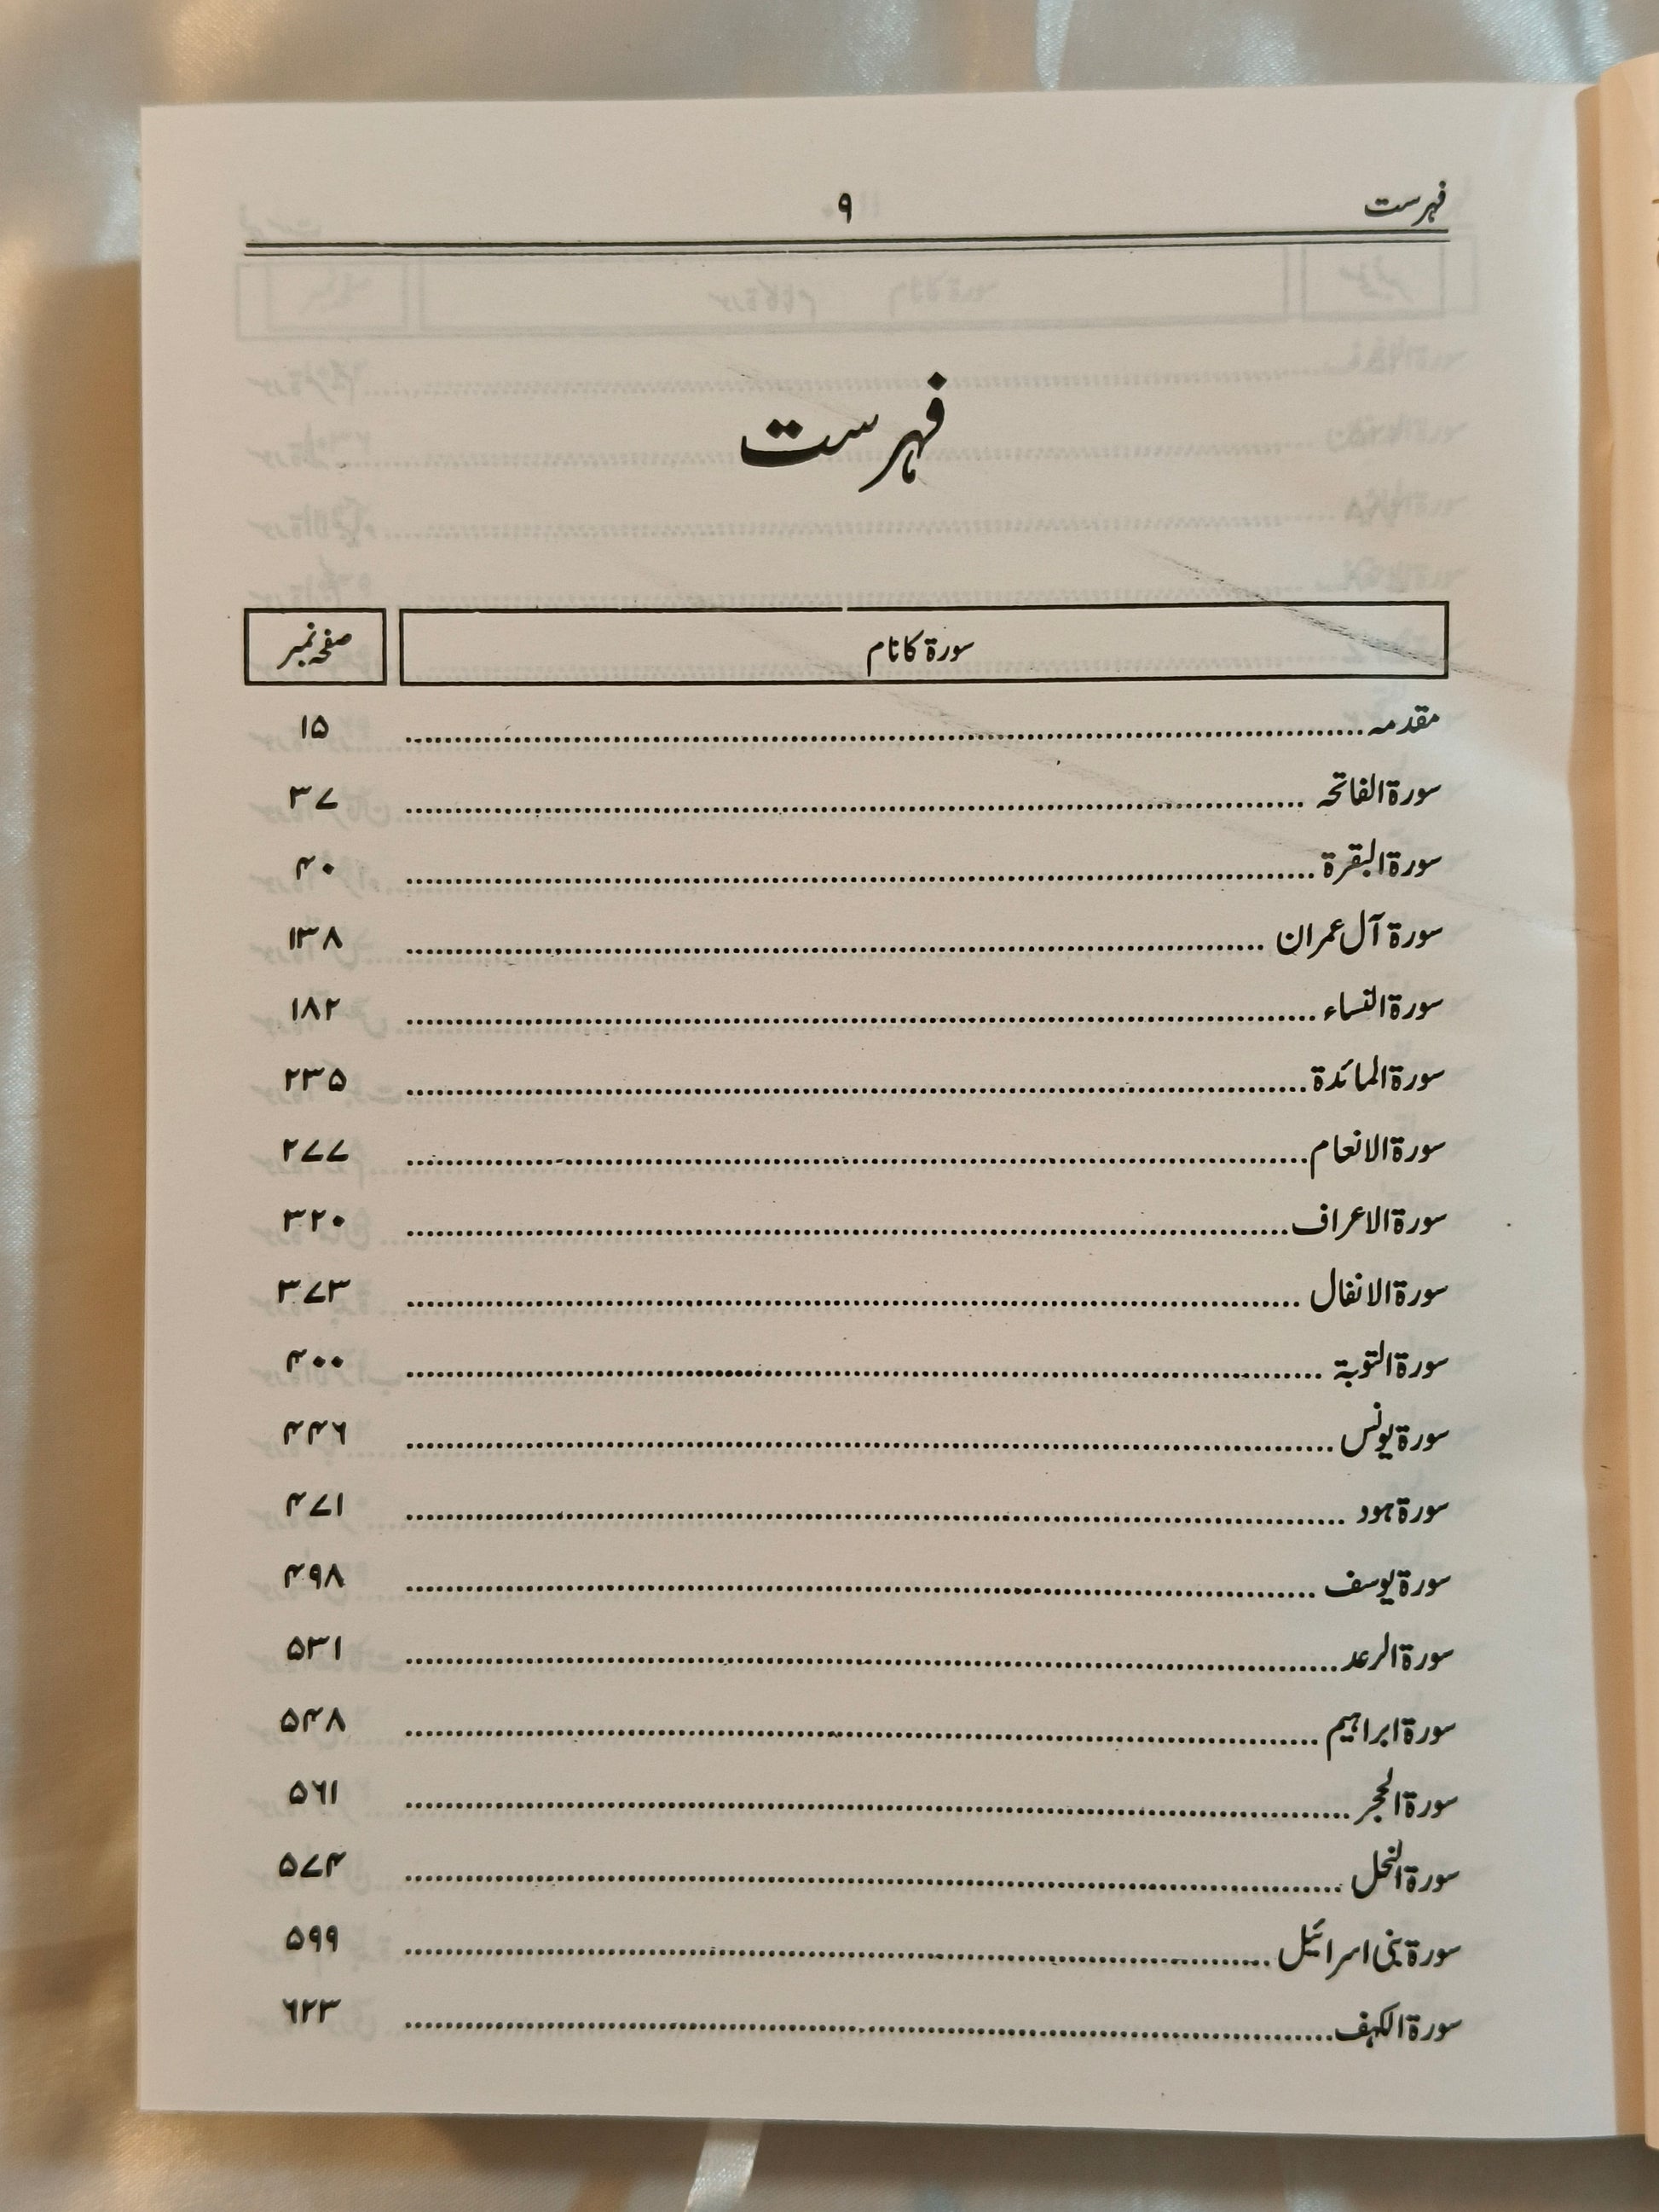 فہرست ۹
فہرست
سورۃ کا نام صفحہ نمبر
مقدمہ ........ ۱۵
سورۃ الفاتحہ ........ ۳۷
سورۃ البقرۃ ........ ۴۰
سورۃ آل عمران ........ ۱۳۸
سورۃ النساء ........ ۱۸۲
سورۃ المائدۃ ........ ۲۳۵
سورۃ الانعام ........ ۲۷۷
سورۃ الاعراف ........ ۳۲۰
سورۃ الانفال ........ ۳۷۳
سورۃ التوبۃ ........ ۴۰۰
سورۃ یونس ........ ۴۴۶
سورۃ ہود ........ ۴۷۱
سورۃ یوسف ........ ۴۹۸
سورۃ الرعد ........ ۵۳۱
سورۃ ابراہیم ........ ۵۴۸
سورۃ الحجر ........ ۵۶۱
سورۃ النحل ........ ۵۷۴
سورۃ بنی اسرائیل ........ ۵۹۹
سورۃ الکہف ........ ۶۲۳